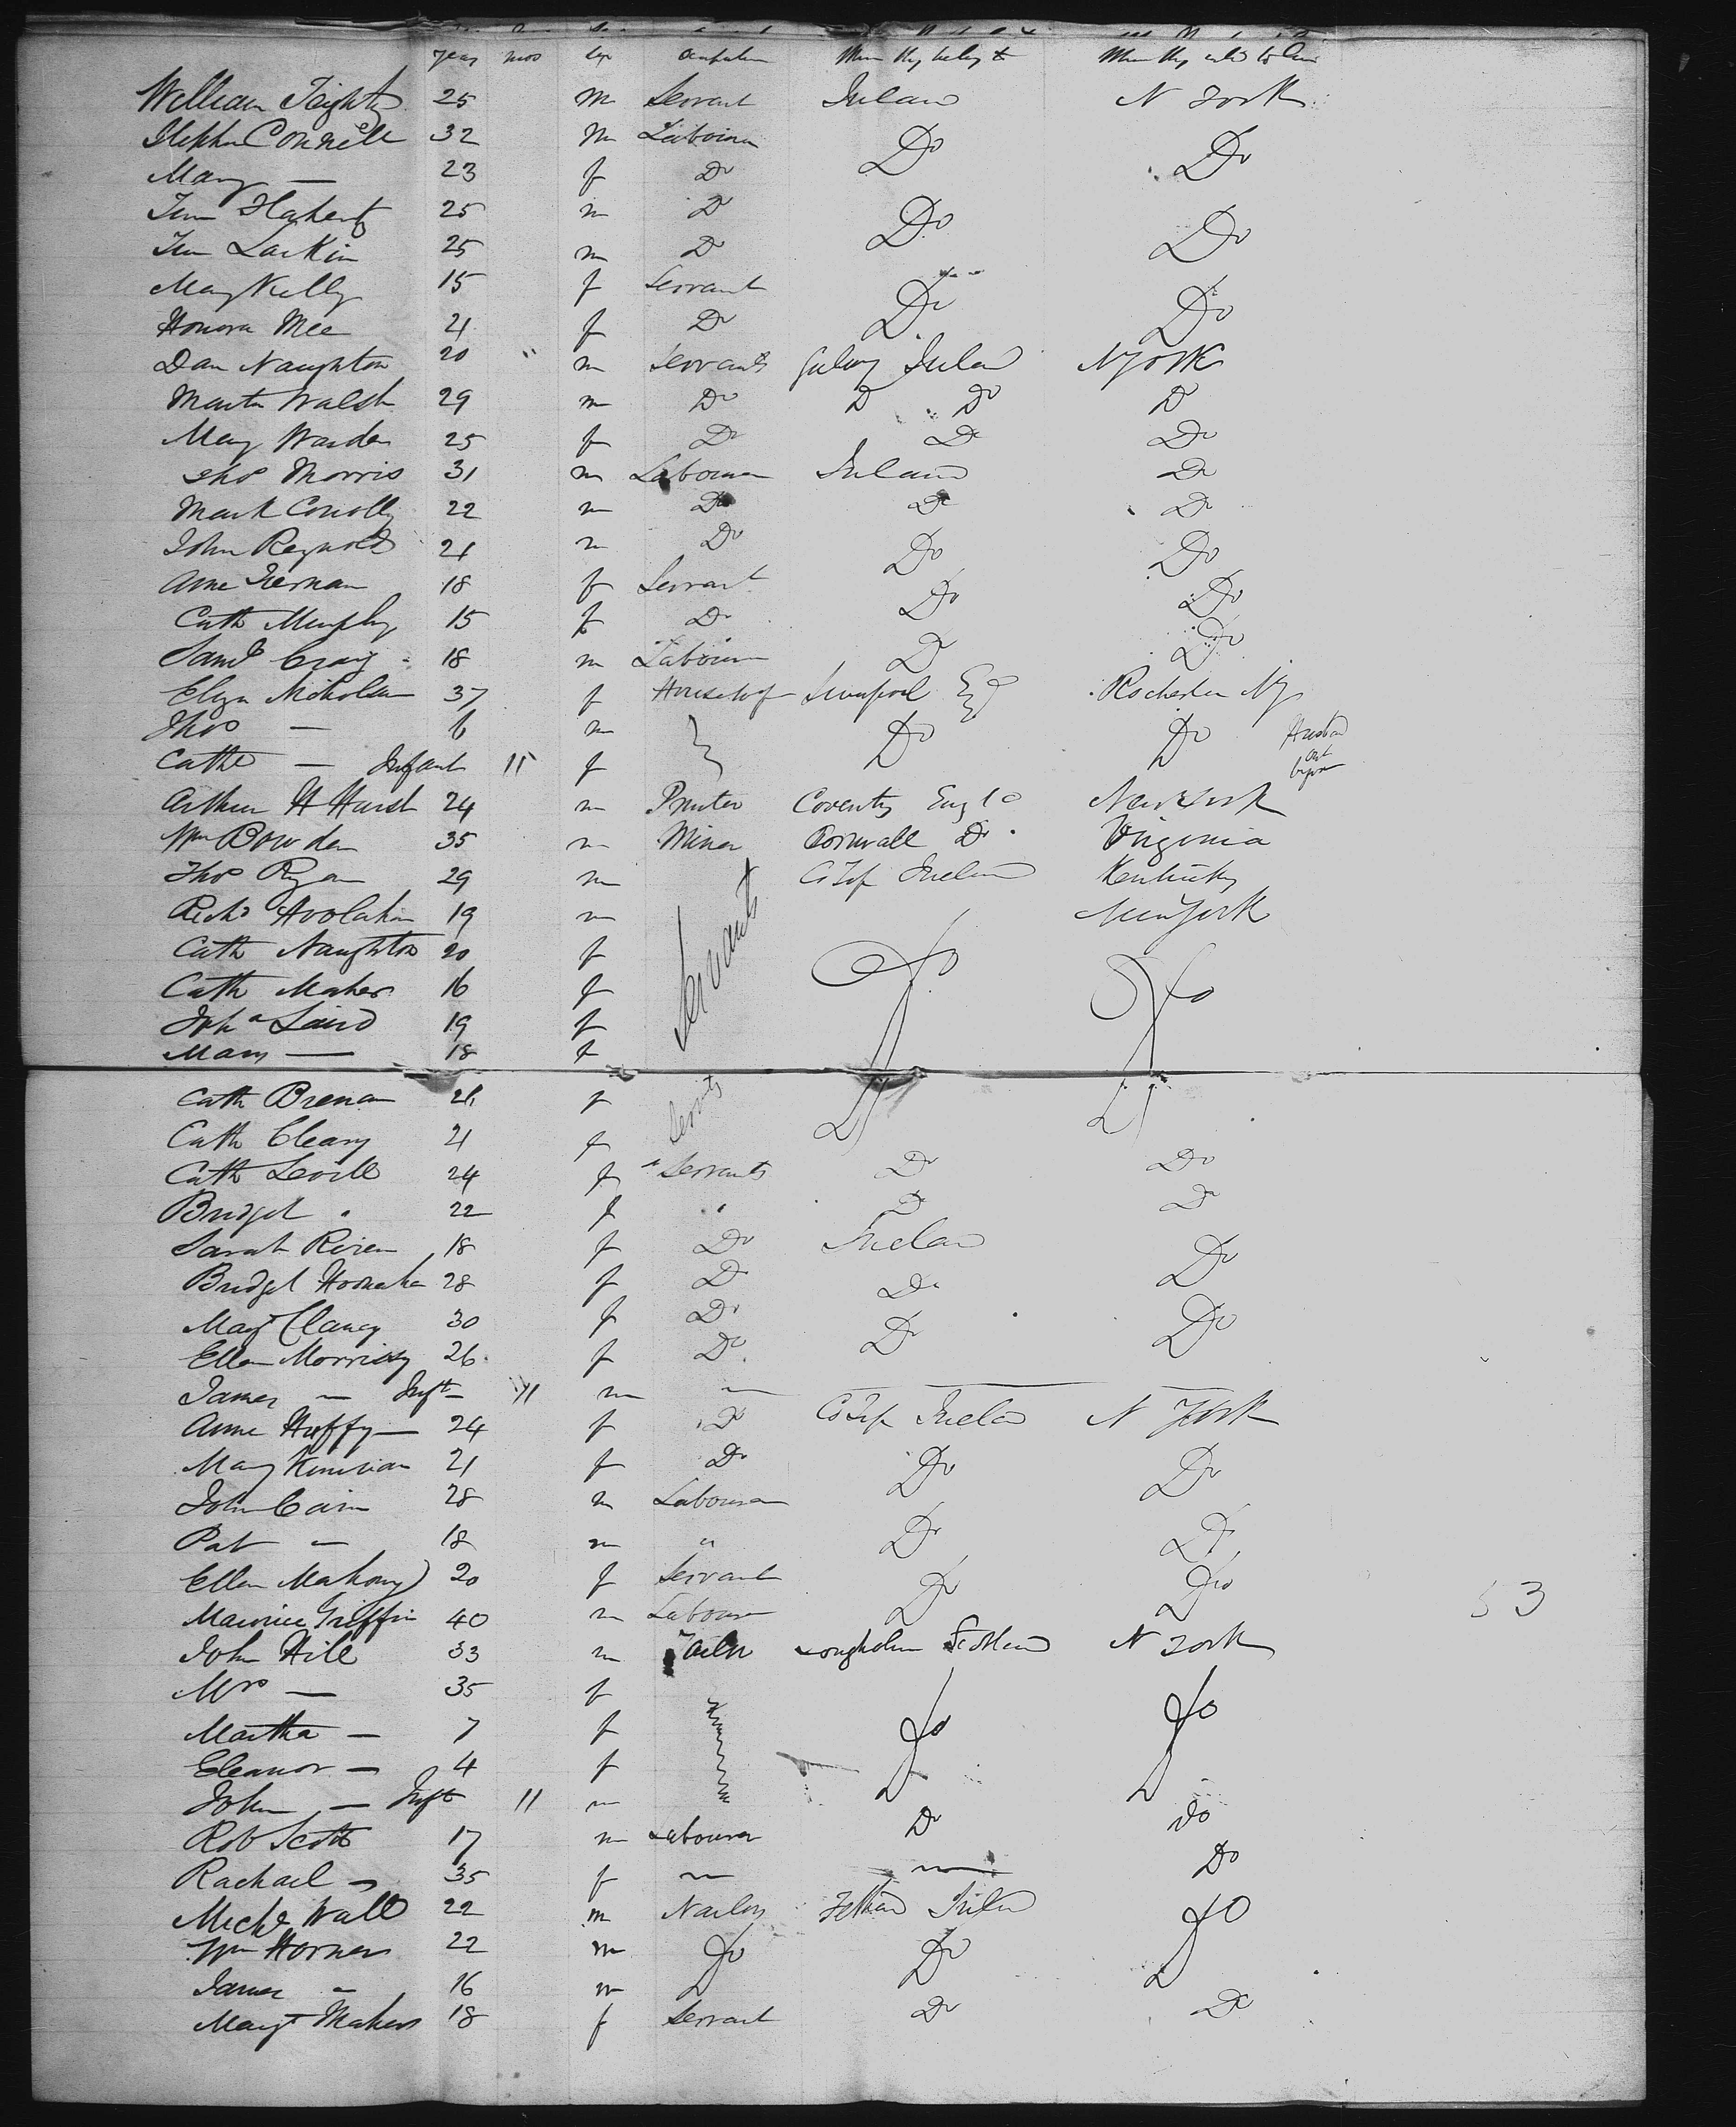 years mos sex occupation
William 25 m Servant Ireland N York
Stephen Connell 32 m Labourer Do Do
Mary — 23 f Do
Tim Flaherty 25 m D Do Do
Tim Larkin 25 m D
Mary Kelly 15 f Servant Do Do
Honora Mee 21 f Do
Dan Naughton 20 " m Servants Galway Ireland N York
Martin Walsh 29 m Do D Do D
Mary Warden 25 f Do Do Do
Thos Morris 31 m Labourer Ireland Do
Mark Conolly 22 m Do Do Do
John Reynolds 21 m Do Do Do
Anne Kernan 18 f Servant Do Do
Cath Murphy 15 f Do
Saml Craig 18 m Labourer D Do
Eliza Nicholson 37 f Housewf Liverpool Egd Rochester NY
Thos — 6 m Do Do Husband out before
Cathe — Infant 11 f
Arthur H Hurst 24 m Printer Coventry Engld New York
Wm Bowden 35 m Miner Cornwall Do Virginia
Thos Ryan 29 m Servants Co Tip Ireland Kentucky
Richd Hoolahan 19 m New York
Cath Naughton 20 f Do Do
Cath Maher 16 f
Joha Laird 19 f
Mary — 18 f
Cath Brenan 21 f Servants
Cath Cleary 21 f
Cath 24 f Servants Do Do
Bridget " 22 f " Do Do
Sarah 18 f Do Ireland Do
Bridget 28 f D Do
Margt Clancy 30 f Do Do Do
Ellen Morrissy 26 f Do
James — Inft 11 m —
Anne Huffy — 24 f Do Co Tip Ireland N York
Mary 21 f Do Do Do
John Cain 28 m Labourer
Pat — 18 m " Do Do
Ellen Mahony 20 f Servant Do Do
Maurice Griffin 40 m Labourer 53
John Hill 33 m Tailor Langholm Scotland N York
Mrs — 35 f
Martha — 7 f Do Do
Eleanor — 4 f
John — Inft 11 m
Rob Scott 17 m Labourer Do do
Rachael — 35 f — — Do
Michl Wall 22 m Nailor Ireland Do
Wm Horner 22 m Do Do
James — 16 m
Margt Mahers 18 f Servant Do Do